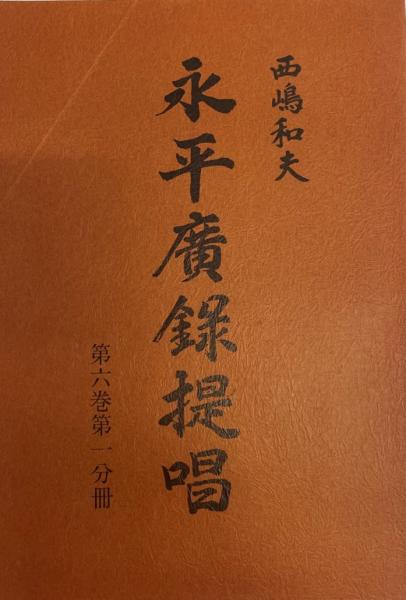 西嶋和夫
永平廣録提唱
第六巻第一分冊